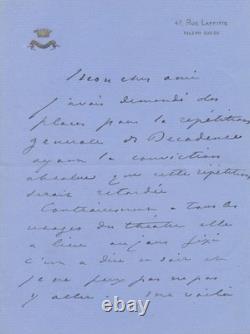 47, Rue Laffitte
Mon cher ami
j'avais demandé des
places pour la répétition
générale de Décadence
ayant la conviction
absolue que cette répétition
serait retardée
Contrairement à tous les
usages du théâtre elle
a lieu au jour fixé
c'est à dire ce soir et
je ne peux pas ne pas
y aller